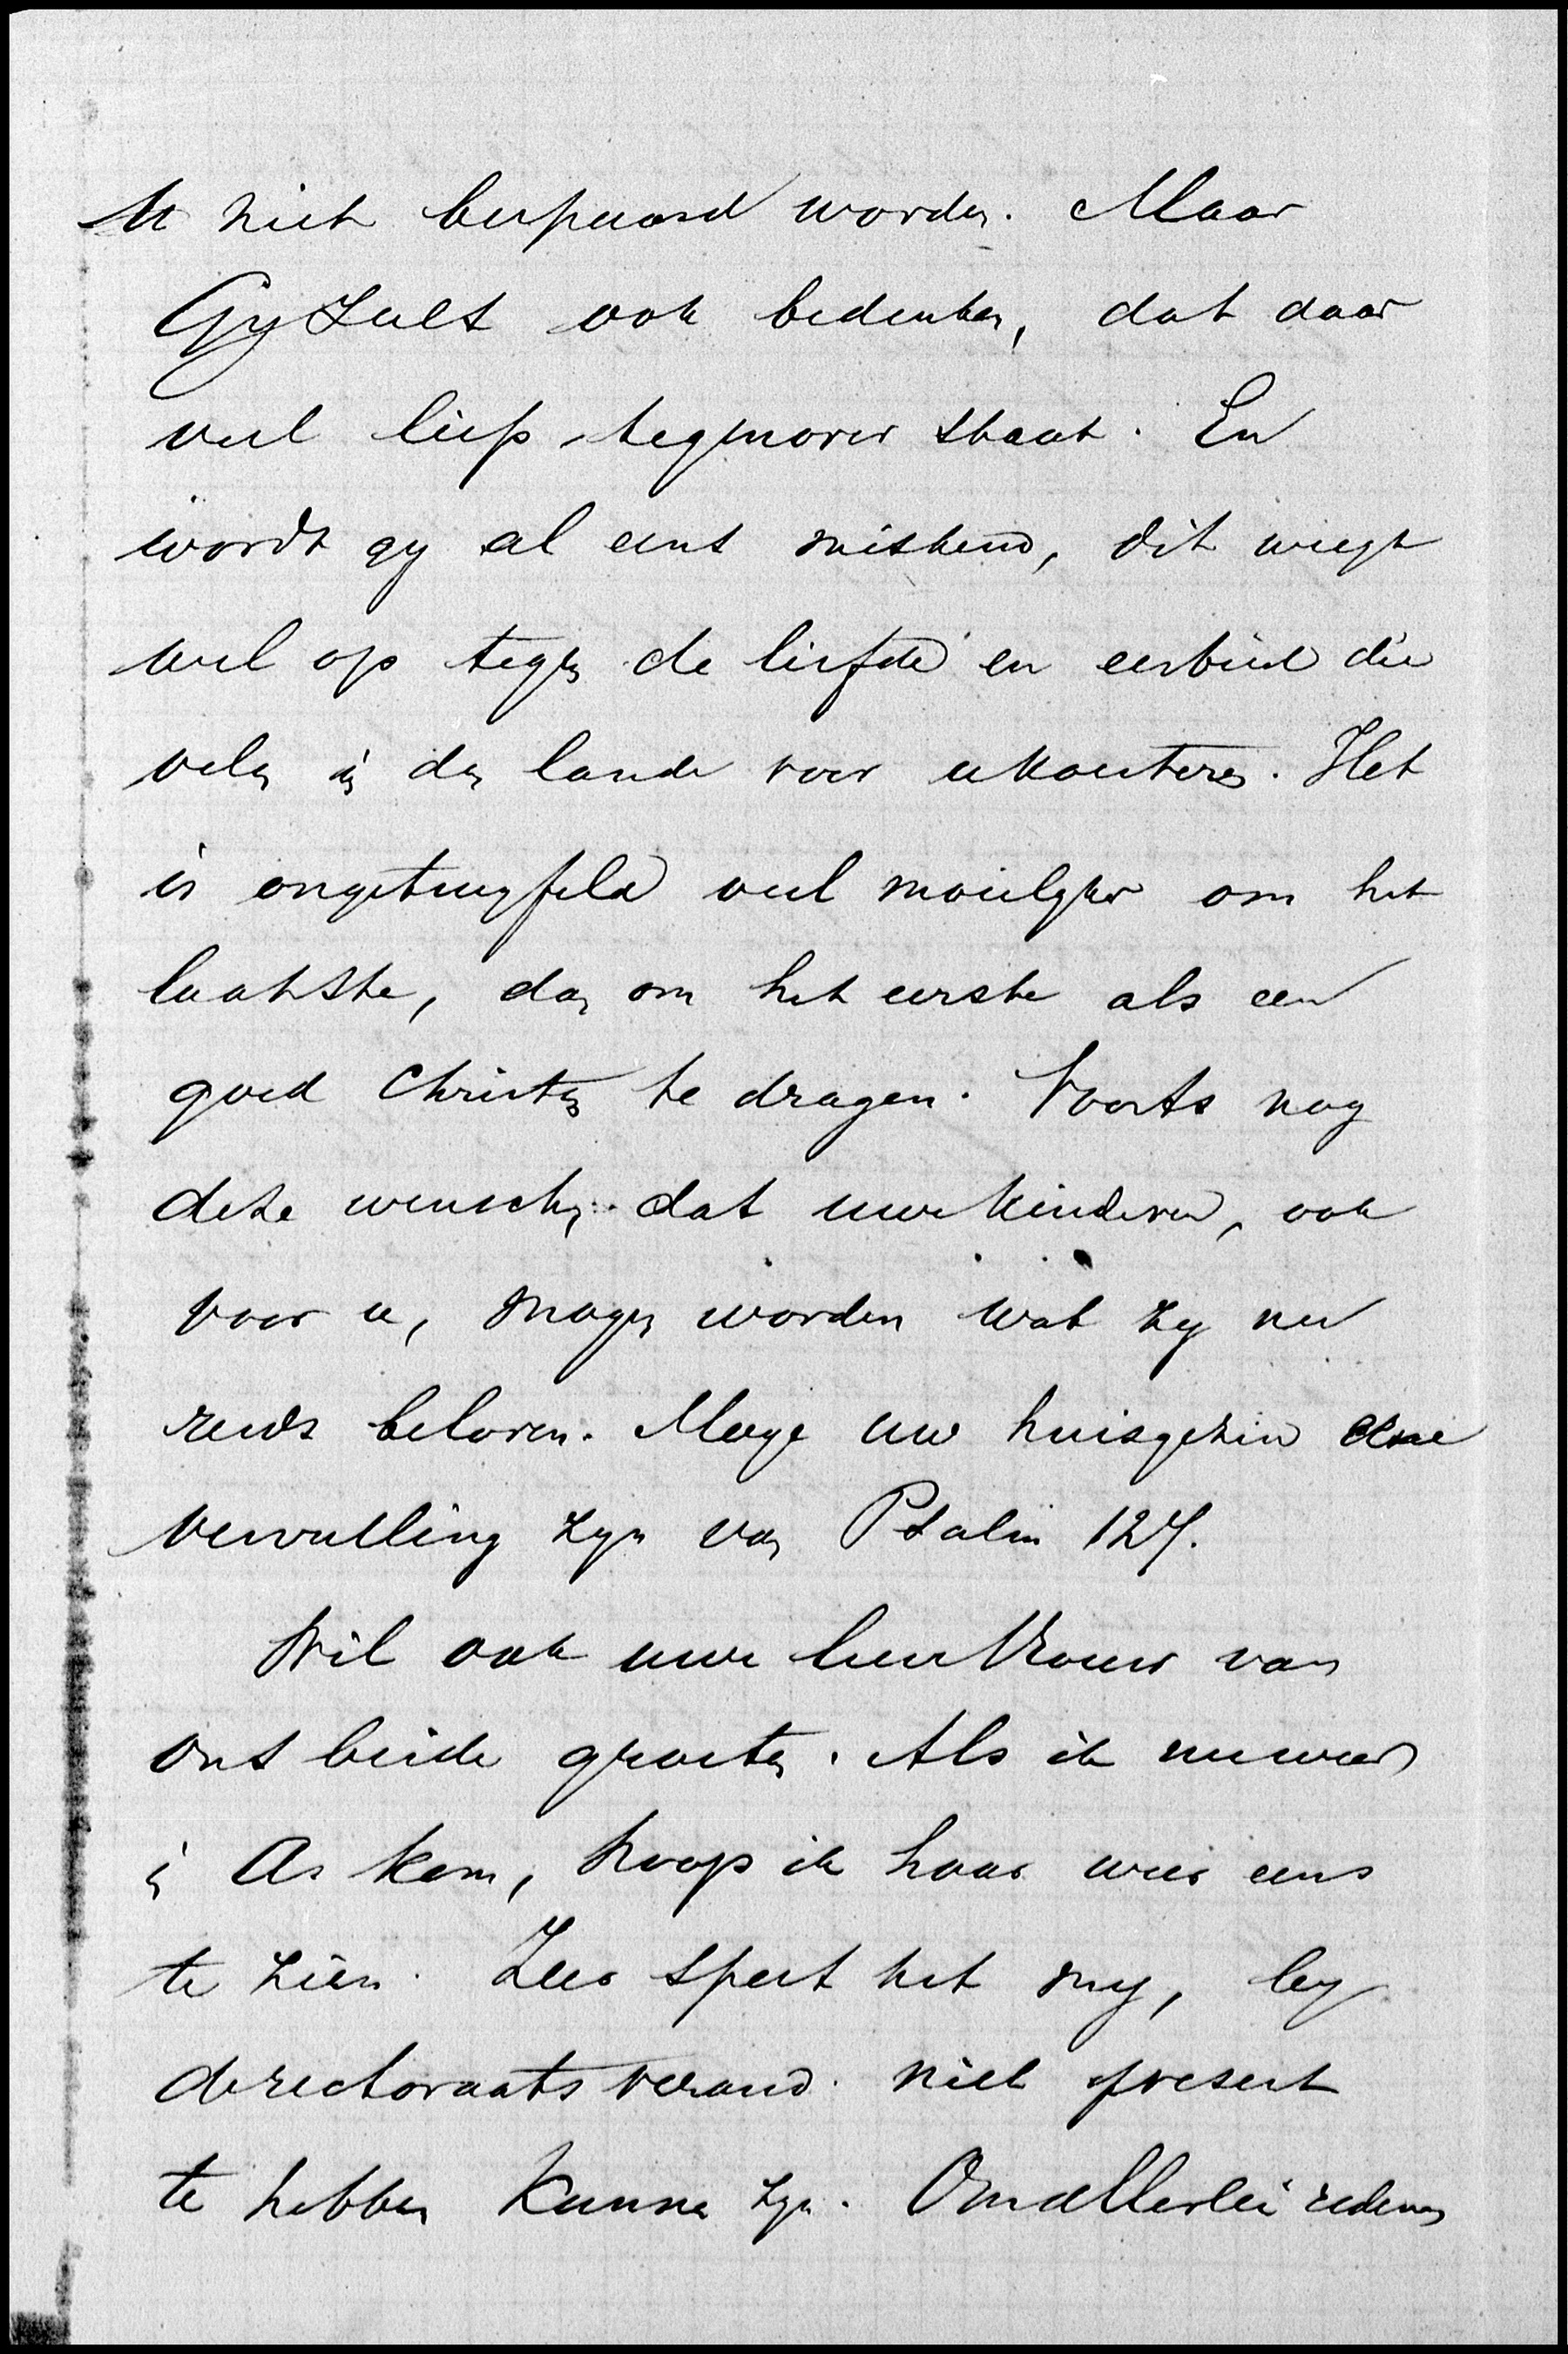 U niet bespaard worden. Maar
Gy zult ook bedenken, dat daar
veel liefs tegenover staat. En
wordt gy al eens miskend, dit weegt
wel op tegen de liefde en eerbied die
velen in den lande voor u koesteren. Het
is ongetwyfeld veel moeilyker om het
laatste, dan om het eerste als een
goed Christen te dragen. Voorts nog
deze wensch, dat uwe kinderen, ook
voor u, mogen worden wat zy nu
reeds beloven. Moge uw huisgezin eene
vervulling zyn van Psalm 127.
Wil ook uwe lieve Vrouw van
ons beide groeten. Als ik nu weer
in As kom, hoop ik haar weer eens
te zien. Zeer speet het my, by
de rectoraatsverand. niet present
te hebben kunnen zyn. Om allerlei redenen